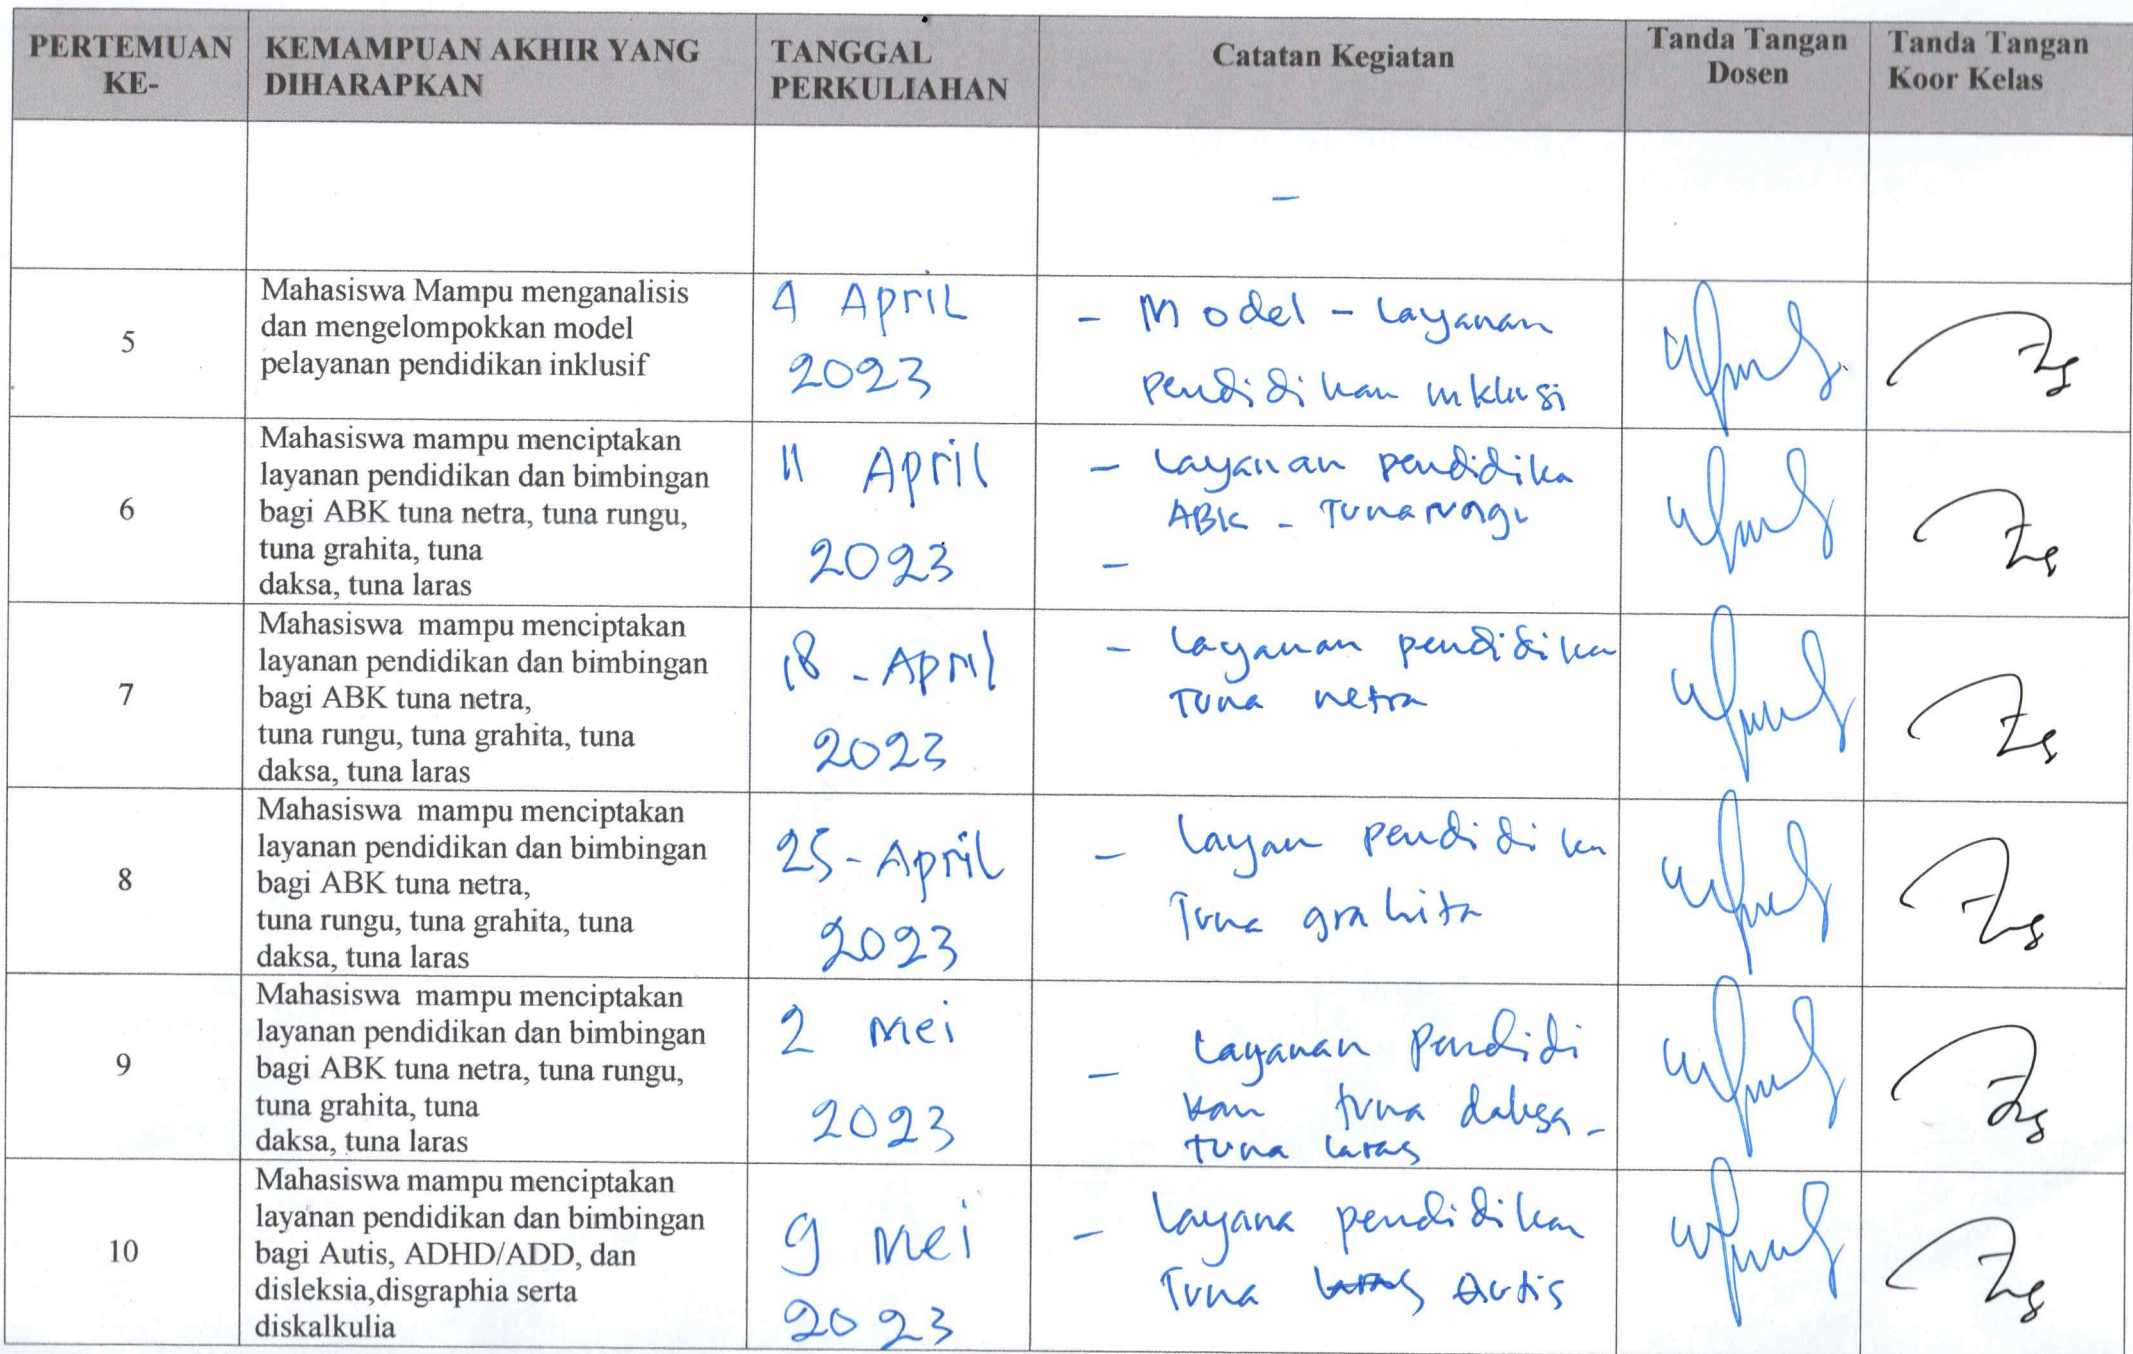 PERTEMUAN KE-
KEMAMPUAN AKHIR YANG DIHARAPKAN
TANGGAL PERKULIAHAN
Catatan Kegiatan
Tanda Tangan Dosen
Tanda Tangan Koor Kelas
-
5
Mahasiswa Mampu menganalisis
dan mengelompokkan model
pelayanan pendidikan inklusif
4 April
2023
- Model - Layanan
pendidikan inklusi
6
Mahasiswa mampu menciptakan
layanan pendidikan dan bimbingan
bagi ABK tuna netra, tuna rungu,
tuna grahita, tuna
daksa, tuna laras
11 April
2023
- Layanan pendidika
ABK - Tunarungu
-
7
Mahasiswa mampu menciptakan
layanan pendidikan dan bimbingan
bagi ABK tuna netra,
tuna rungu, tuna grahita, tuna
daksa, tuna laras
18 - April
2023
- Layanan pendidika
Tuna netra
8
Mahasiswa mampu menciptakan
layanan pendidikan dan bimbingan
bagi ABK tuna netra,
tuna rungu, tuna grahita, tuna
daksa, tuna laras
25 - April
2023
- Layan pendidikan
Tuna grahita
9
Mahasiswa mampu menciptakan
layanan pendidikan dan bimbingan
bagi ABK tuna netra, tuna rungu,
tuna grahita, tuna
daksa, tuna laras
2 Mei
2023
- Layanan Pendidi
kan tuna daksa -
tuna laras
10
Mahasiswa mampu menciptakan
layanan pendidikan dan bimbingan
bagi Autis, ADHD/ADD, dan
disleksia,disgraphia serta
diskalkulia
9 Mei
2023
- Layana pendidikan
Tuna laras Autis